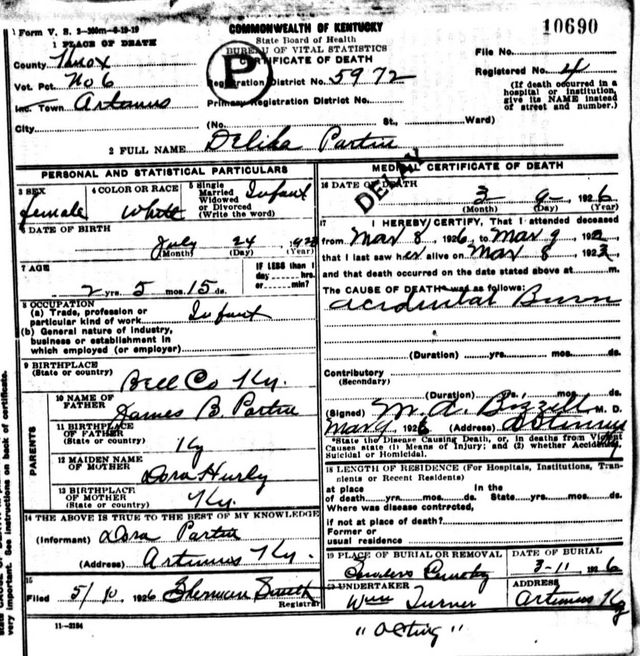 Form V. S. 2-200m-6-19-19
COMMONWEALTH OF KENTUCKY
State Board of Health
BUREAU OF VITAL STATISTICS
CERTIFICATE OF DEATH
10690
1 PLACE OF DEATH
County Knox
Vot. Pct. No 6
Inc. Town Artemus
City
P
Registration District No. 5972
Primary Registration District No.
(No. St., Ward)
File No.
Registered No. 4
(If death occurred in a hospital or institution, give its NAME instead of street and number.)
2 FULL NAME Delika Partin
PERSONAL AND STATISTICAL PARTICULARS
3 SEX female
4 COLOR OR RACE White
5 Single Married Widowed or Divorced (Write the word) Infant
6 DATE OF BIRTH
July 24, 1923
(Month) (Day) (Year)
7 AGE
2 yrs. 5 mos. 15 ds.
IF LESS than 1 day hrs. or min?
8 OCCUPATION
(a) Trade, profession or particular kind of work Infant
(b) General nature of industry, business or establishment in which employed (or employer)
9 BIRTHPLACE
(State or country) Bell Co Ky.
PARENTS
10 NAME OF FATHER James B. Partin
11 BIRTHPLACE OF FATHER (State or country) Ky
12 MAIDEN NAME OF MOTHER Dora Hurly
13 BIRTHPLACE OF MOTHER (State or country) Ky.
14 THE ABOVE IS TRUE TO THE BEST OF MY KNOWLEDGE
(Informant) Dora Partin
(Address) Artemus Ky.
15
Filed 5/10, 1926 Sherman Smith
Registrar
11-3184
MEDICAL CERTIFICATE OF DEATH
DELAY
16 DATE OF DEATH 3 9, 1926
(Month) (Day) (Year)
17 I HEREBY CERTIFY, That I attended deceased
from Mar 8, 1926, to Mar 9, 192
that I last saw her alive on Mar 8, 192
and that death occurred on the date stated above at m.
The CAUSE OF DEATH was as follows:
accidental Burn
(Duration) yrs. mos. ds.
Contributory
(Secondary)
(Duration) yrs. mos. ds.
(Signed) M. A. Bizzell M. D.
Mar 9, 1926 (Address)
*State the Disease Causing Death, or, in deaths from Violent Causes state (1) Means of Injury; and (2) whether Accidental, Suicidal or Homicidal.
18 LENGTH OF RESIDENCE (For Hospitals, Institutions, Transients or Recent Residents)
at place of death yrs. mos. ds. In the State yrs. mos. ds.
Where was disease contracted,
if not at place of death?
Former or usual residence
19 PLACE OF BURIAL OR REMOVAL
DATE OF BURIAL
3-11, 1926
20 UNDERTAKER
Will Turner
ADDRESS
Artemus Ky
"acting"
very important. See instructions on back of certificate.